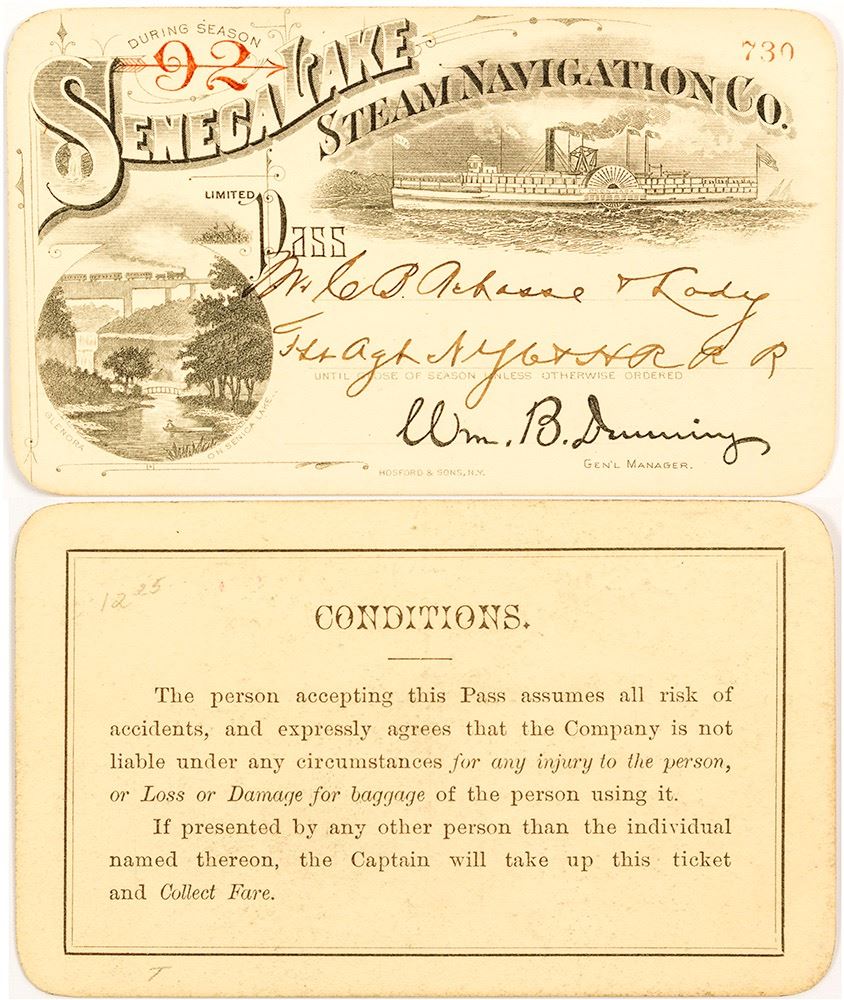 DURING SEASON
92
730
SENECA LAKE
STEAM NAVIGATION CO.
LIMITED
Pass
Mr C B. & Lady
Agt N Y C & H R R R
UNTIL CLOSE OF SEASON UNLESS OTHERWISE ORDERED
Wm. B. Dunning
GEN'L MANAGER.
GLENORA ON SENECA LAKE
HOSFORD & SONS, N.Y.
12 25
CONDITIONS.
The person accepting this Pass assumes all risk of
accidents, and expressly agrees that the Company is not
liable under any circumstances for any injury to the person,
or Loss or Damage for baggage of the person using it.
If presented by any other person than the individual
named thereon, the Captain will take up this ticket
and Collect Fare.
T